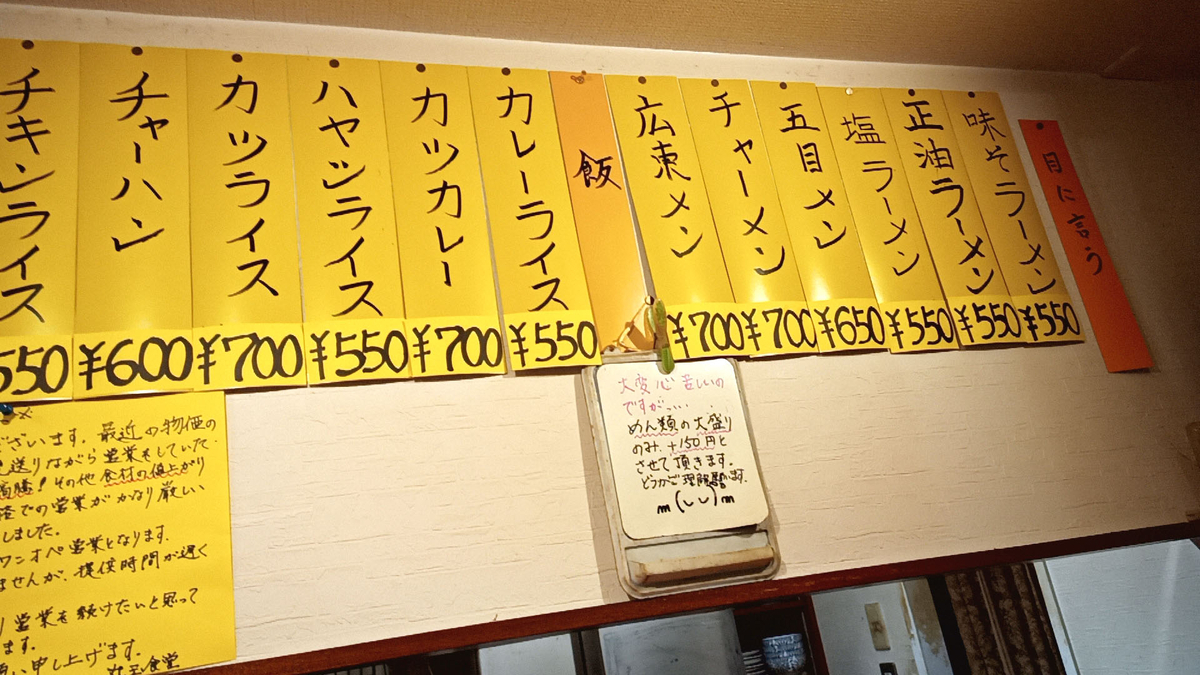 目に言う
味そラーメン
¥550
正油ラーメン
¥550
塩ラーメン
¥550
五目メン
¥650
チャーメン
¥700
広東メン
¥700
飯
カレーライス
¥550
カツカレー
¥700
ハヤシライス
¥550
カツライス
¥700
チャーハン
¥600
チキンライス
550
大変心苦しいの
ですが....
めん類の大盛り
のみ、+150円と
させて頂きます。
どうかご理解願います。
m(_ _)m
ざいます。最近の物価の
送りながら営業をしていた
高騰!その他食材の値上がり
での営業がかなり厳しい
しました。
ワンオペ営業となります。
ませんが、提供時間が遅く
営業を続けたいと思って
ます。
申し上げます。 食堂